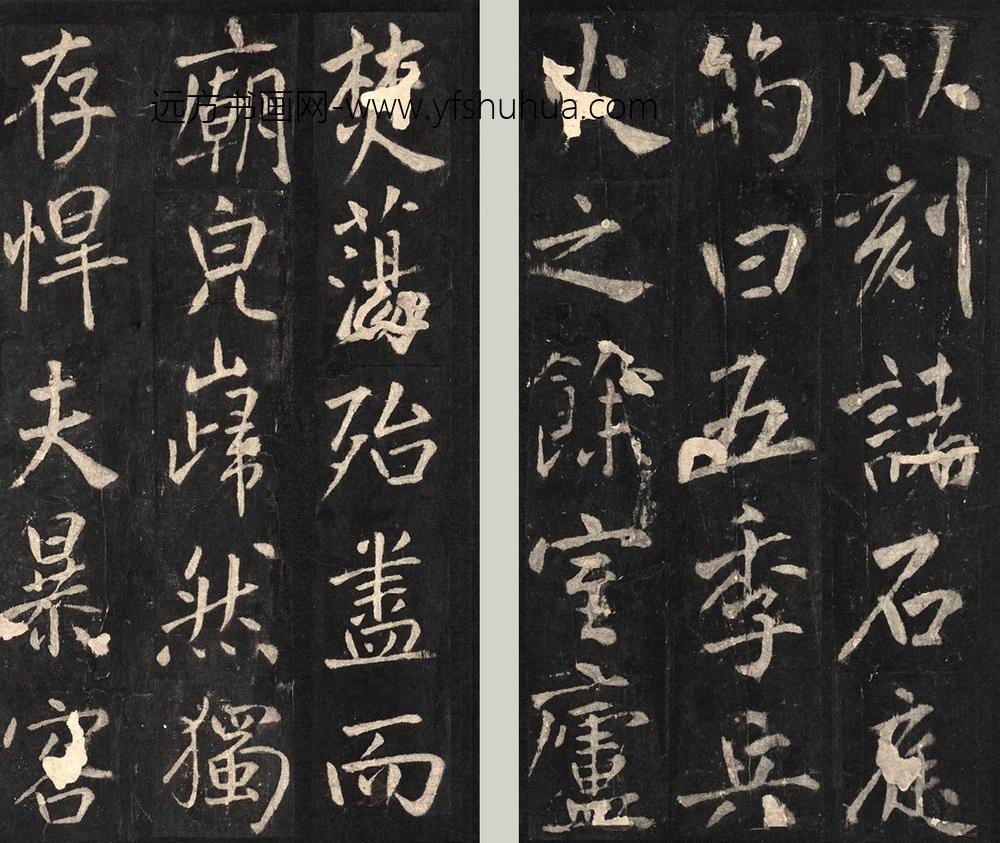 以刻諸石庭
筠曰五季兵
火之餘室廬
焚蕩殆盡而
廟皃巋然獨
存悍夫暴客
远方书画网-www.yfshuhua.com